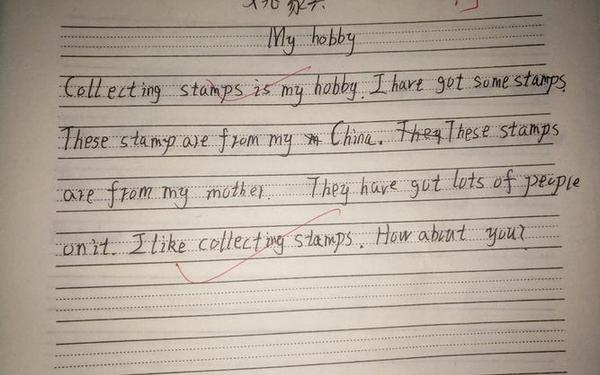 My hobby
Collecting stamps is my hobby. I have got some stamps.
These stamp are from my China. They These stamps
are from my mother. They have got lots of people
on it. I like collecting stamps. How about you?